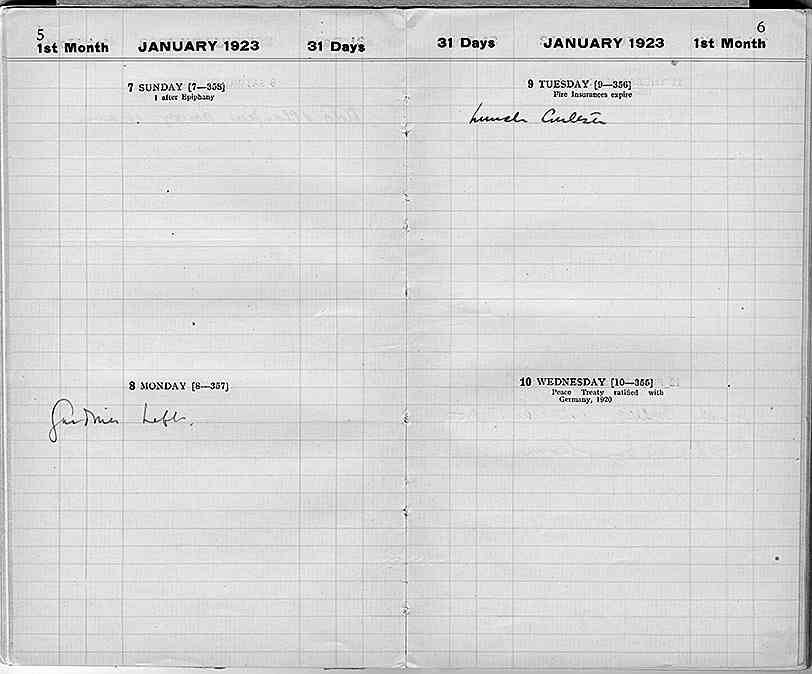 5
1st Month JANUARY 1923 31 Days
7 SUNDAY [7—358]
1 after Epiphany
8 MONDAY [8—357]
Gardiner left.
6
31 Days JANUARY 1923 1st Month
9 TUESDAY [9—356]
Fire Insurances expire
Lunch
10 WEDNESDAY [10—355]
Peace Treaty ratified with
Germany, 1920